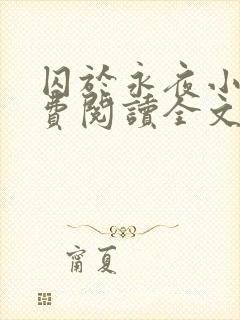 囚於永夜小
費閱讀全文
甯夏